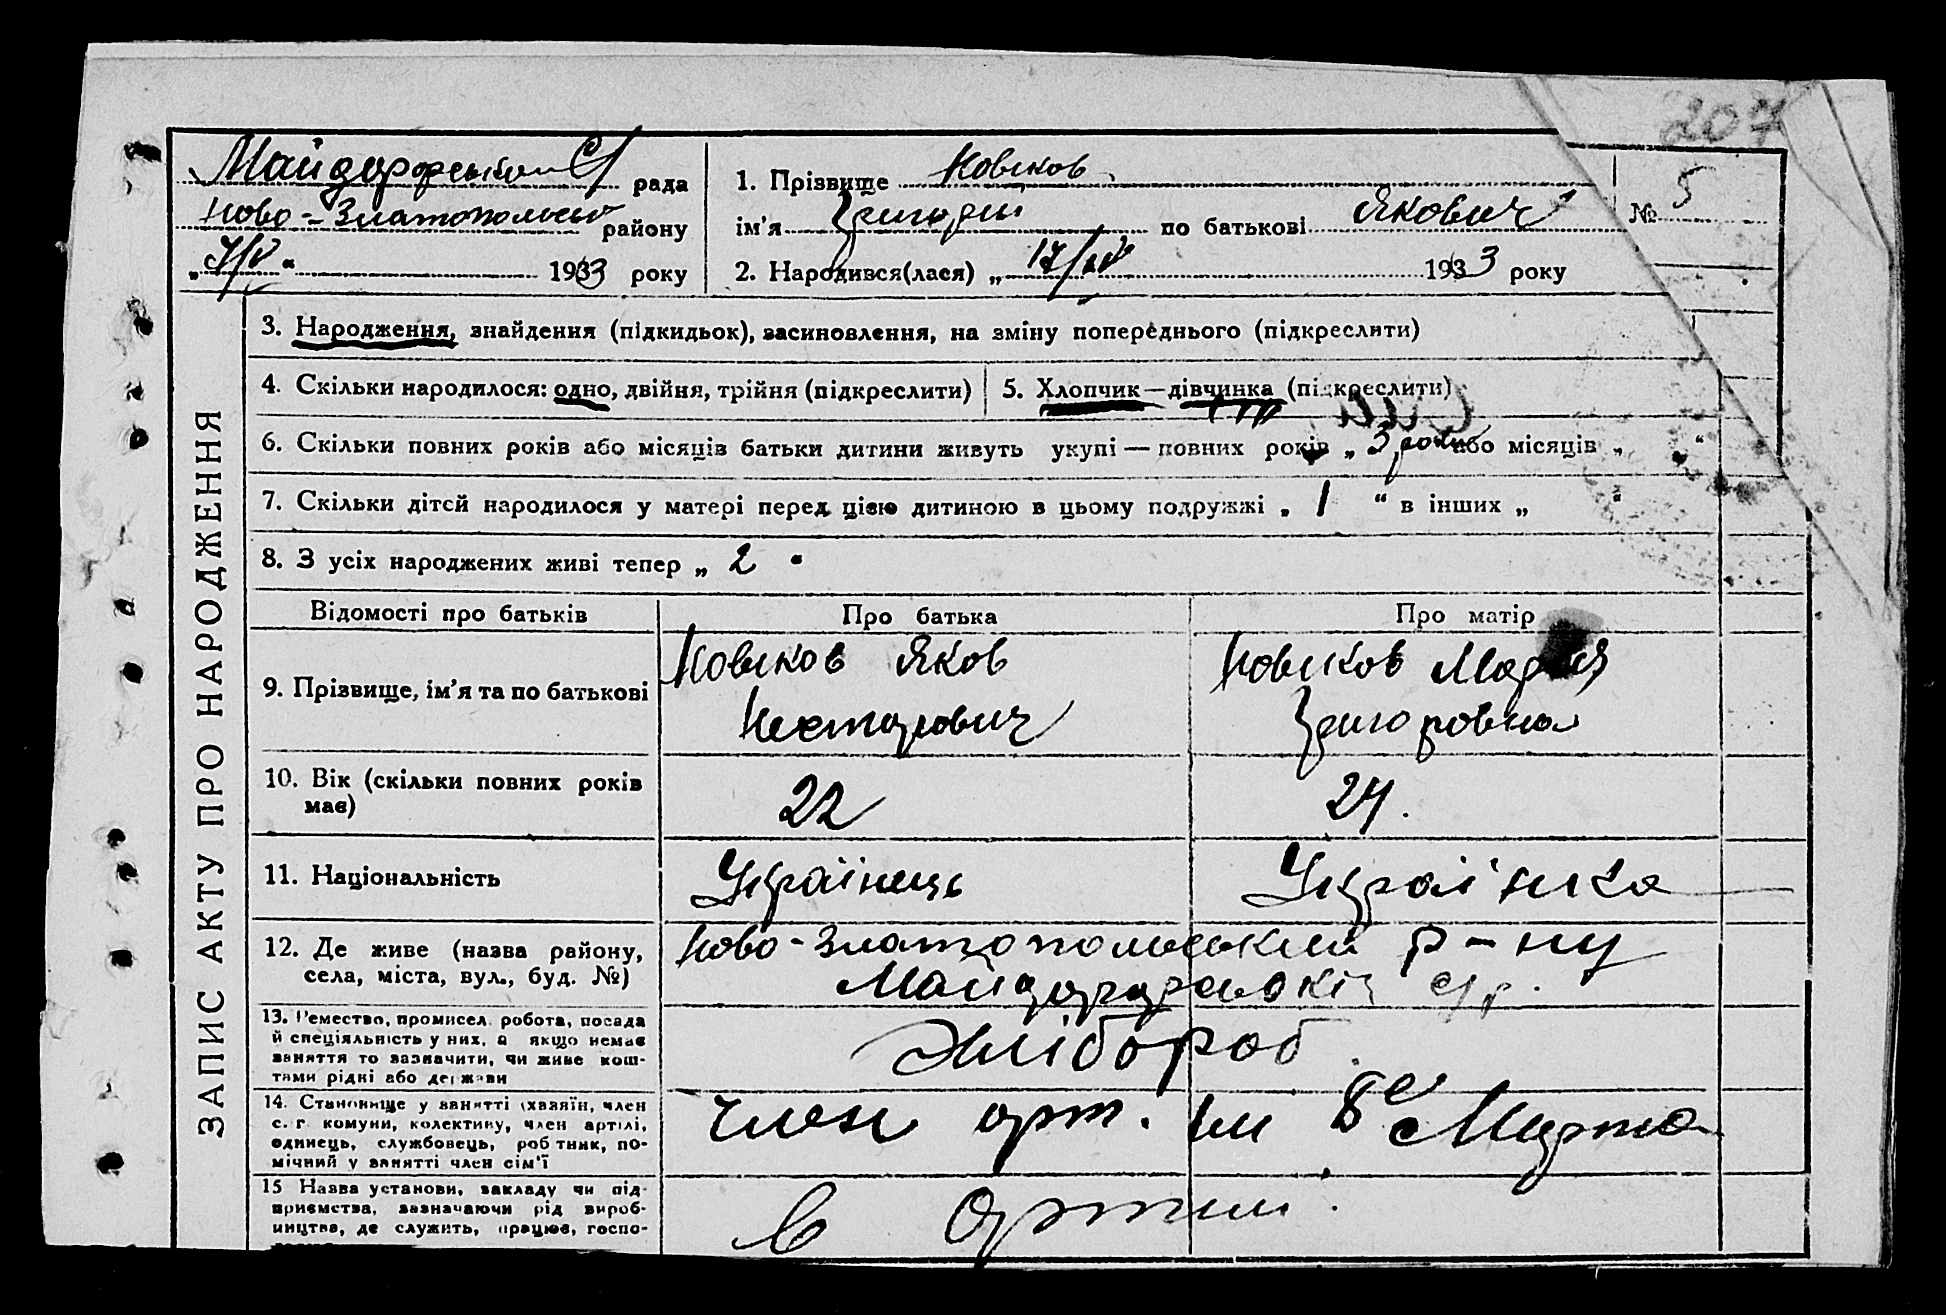 207
рада
1. Прізвище Новиков
№ 5
Ново-Златопольськ району
ім'я Григорий по батькові Якович
"7/V" 1933 року
2. Народився(лася) „17/IV" 1933 року
ЗАПИС АКТУ ПРО НАРОДЖЕННЯ
3. Народження, знайдення (підкидьок), засиновлення, на зміну попереднього (підкреслити)
4. Скільки народилося: одно, двійня, трійня (підкреслити)
5. Хлопчик—дівчинка (підкреслити)
6. Скільки повних років або місяців батьки дитини живуть укупі — повних років „ 3 роки або місяців „ "
7. Скільки дітей народилося у матері перед цією дитиною в цьому подружжі „ 1 " в інших „ "
8. З усіх народжених живі тепер „ 2 "
Відомості про батьків
Про батька
Про матір
9. Прізвище, ім'я та по батькові
Новиков Яков
Нестерович
Новиков Мария
Григоровна
10. Вік (скільки повних років
має)
22
24.
11. Національність
Українець
Українка
12. Де живе (назва району,
села, міста, вул., буд. №)
Ново-Златопольський р-ну
13. Ремество, промисел, робота, посада
й спеціяльність у них, а якщо немає
заняття то зазначити, чи живе кош-
тами рідні або держави
Хлібороб
14. Становище у занятті (хазяїн, член
с.-г. комуни, колективу, член артілі,
одинець, службовець, робітник, по-
мічний у занятті член сім'ї
член арт. Ім 8е Марта
15 Назва установи, закладу чи під-
приємства, зазначаючи рід вироб-
ництва, де служить, працює, госпо-
в артили.